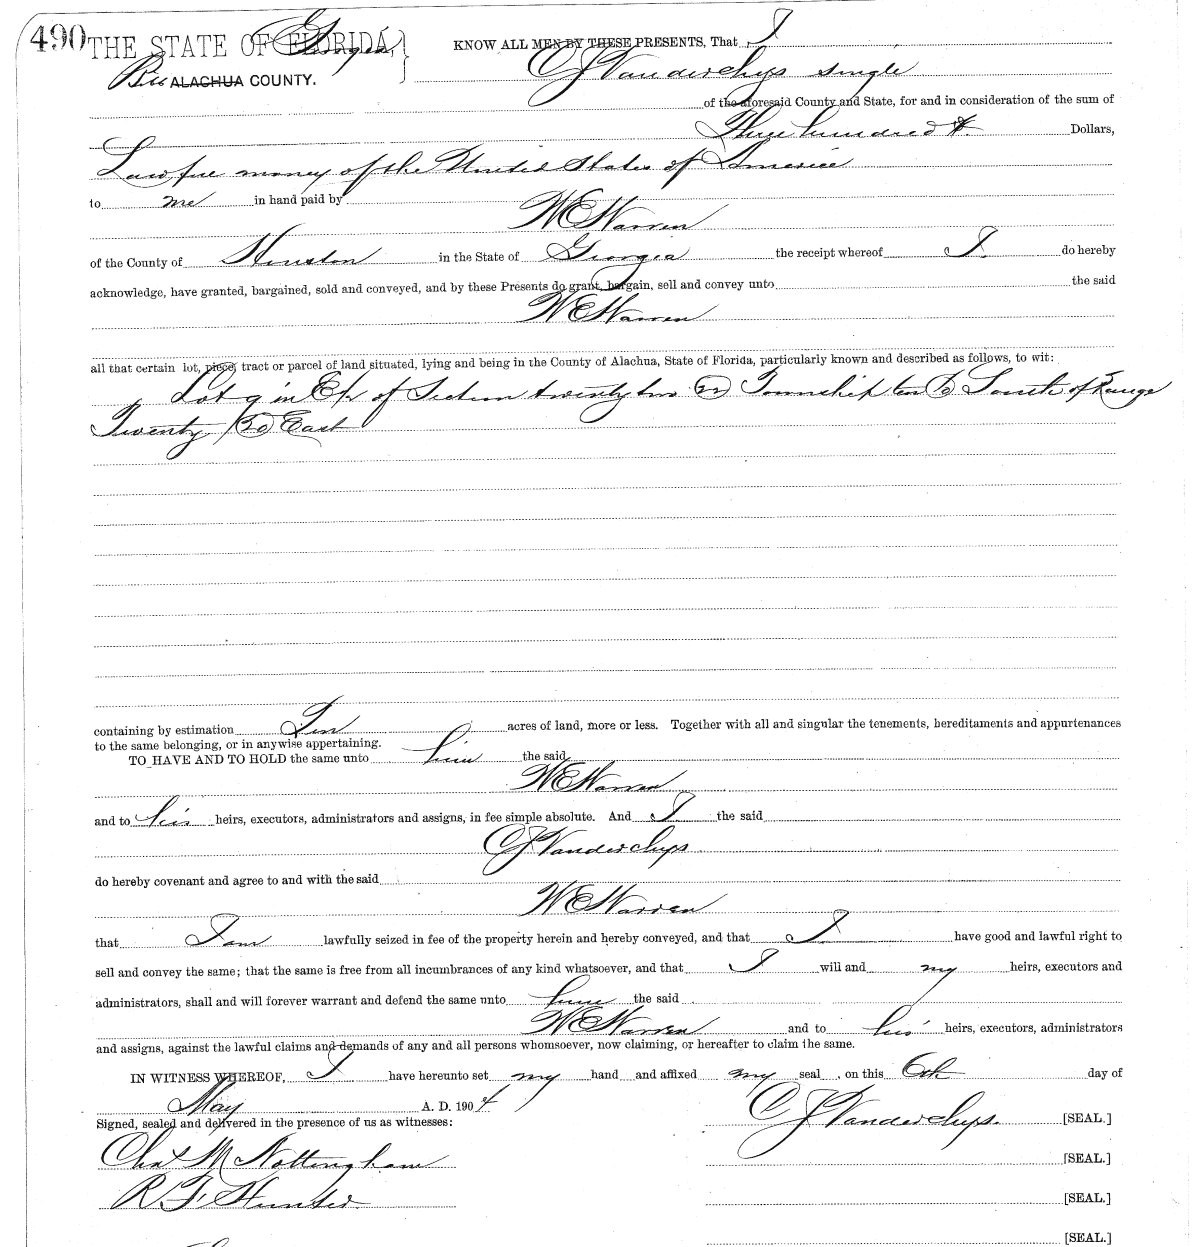 490 THE STATE OF FLORIDA, Georgia } KNOW ALL MEN BY THESE PRESENTS, That I
Bibb ALACHUA COUNTY. C J Vanderclys single
of the aforesaid County and State, for and in consideration of the sum of
Three hundred Dollars,
Lawful money of the United States of America
to me in hand paid by
W E Warren
of the County of Houston in the State of Georgia the receipt whereof I do hereby
acknowledge, have granted, bargained, sold and conveyed, and by these Presents do grant, bargain, sell and convey unto the said
W E Warren
all that certain lot, piece, tract or parcel of land situated, lying and being in the County of Alachua, State of Florida, particularly known and described as follows, to wit:
Lot 9 in E½ of Section twenty two (22) Township ten (10) South of Range
Twenty (20) East
containing by estimation Ten acres of land, more or less. Together with all and singular the tenements, hereditaments and appurtenances
to the same belonging, or in anywise appertaining.
TO HAVE AND TO HOLD the same unto him the said
W E Warren
and to his heirs, executors, administrators and assigns, in fee simple absolute. And I the said
C J Vanderclys
do hereby covenant and agree to and with the said
W E Warren
that I am lawfully seized in fee of the property herein and hereby conveyed, and that I have good and lawful right to
sell and convey the same; that the same is free from all incumbrances of any kind whatsoever, and that I will and my heirs, executors and
administrators, shall and will forever warrant and defend the same unto him the said
W E Warren and to his heirs, executors, administrators
and assigns, against the lawful claims and demands of any and all persons whomsoever, now claiming, or hereafter to claim the same.
IN WITNESS WHEREOF, I have hereunto set my hand and affixed my seal , on this 6th day of
May A. D. 1904
Signed, sealed and delivered in the presence of us as witnesses: C J Vanderclys. [SEAL.]
Chas M Nottingham [SEAL.]
R. F. Hunter [SEAL.]
[SEAL.]